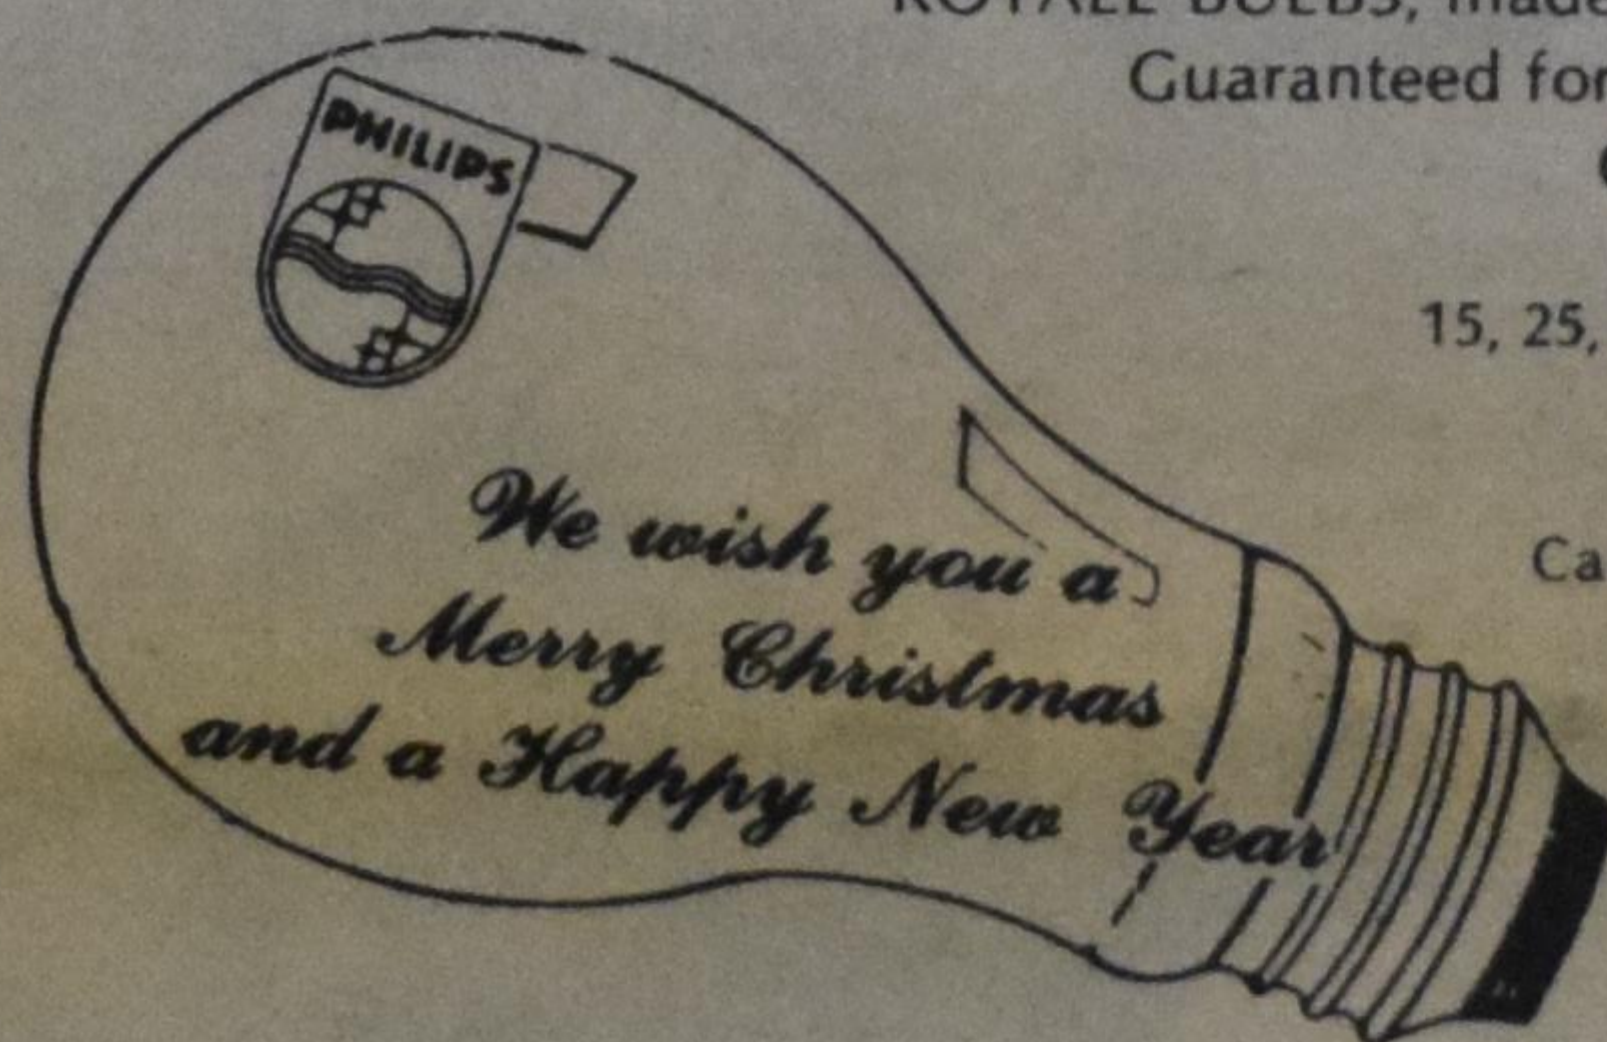 BULBS, made
Guaranteed for
15, 25,
PHILIPS
We wish you a
Merry Christmas
and a Happy New Year